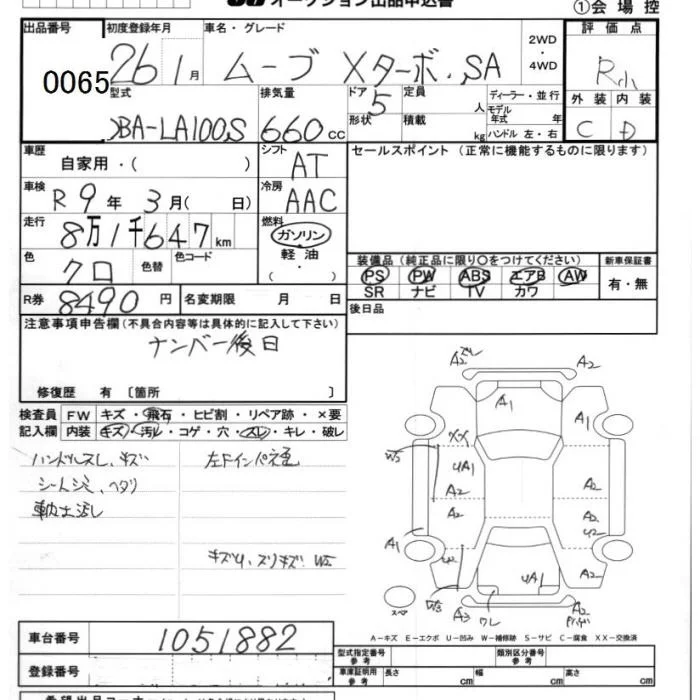 オークション出品申込書
①会場控
出品番号 初度登録年月 車名・グレード 2WD・4WD 評価点
0065 26 1月 ムーブ Xターボ.SA R小
型式 排気量 ドア 定員 人 ディーラー・並行 外装 内装
DBA-LA100S 660cc 5 形状 積載 kg モデル年式 年 ハンドル 左・右 C D
車歴 自家用・( ) シフト AT セールスポイント (正常に機能するものに限ります)
車検 R9年3月( 日) 冷房 AAC
走行 8万1千647km 燃料 ガソリン 軽油 ・( )
色 クロ 色替 色コード
装備品 (純正品に限り○をつけてください) 新車保証書
PS PW ABS エアB AW 有・無
SR ナビ TV カワ
R券 8490円 名変期限 月 日 後日品
注意事項申告欄(不具合内容等は具体的に記入して下さい)
ナンバー後日
修復歴 有 〔箇所 〕
検査員 FW キズ・飛石・ヒビ割・リペア跡・×要
記入欄 内装 キズ・汚レ・コゲ・穴・スレ・キレ・破レ
ハンドルスレ、キズ
シートシミ、ヘタリ
左Fインパネ
キズU、スリキズ
A2 A2
A1 A1
XX
W3 UA1 A2
A2 A2
A2 A2
A1 U2
U2 UA1 A2
W3 A3 ワレ A2
スペア
A-キズ E-エクボ U-凹み W-補修跡 S-サビ C-腐食 XX-交換済
車台番号 1051882
登録番号
型式指定番号 参考 類別区分番号 参考
車庫証明用 参考 長さ cm 幅 cm 高さ cm